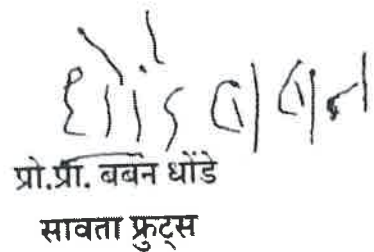 धोंडे बबन
प्रो.प्रा. बबन धोंडे
सावता फ्रुट्स